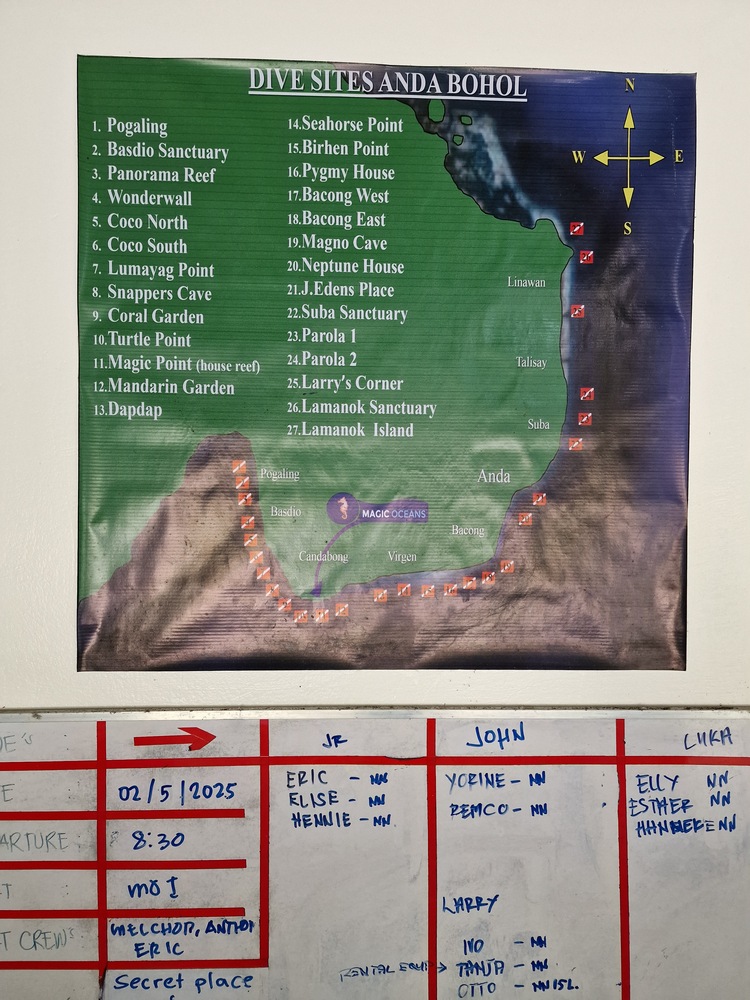 DIVE SITES ANDA BOHOL
N
W
E
S
1. Pogaling
2. Basdio Sanctuary
3. Panorama Reef
4. Wonderwall
5. Coco North
6. Coco South
7. Lumayag Point
8. Snappers Cave
9. Coral Garden
10. Turtle Point
11. Magic Point (house reef)
12. Mandarin Garden
13. Dapdap
14. Seahorse Point
15. Birhen Point
16. Pygmy House
17. Bacong West
18. Bacong East
19. Magno Cave
20. Neptune House
21. J.Edens Place
22. Suba Sanctuary
23. Parola 1
24. Parola 2
25. Larry's Corner
26. Lamanok Sanctuary
27. Lamanok Island
Linawan
Talisay
Suba
Anda
Pogaling
Basdio
MAGIC OCEANS
Bacong
Candabong
Virgen
JR
JOHN
LUKA
02/5/2025
ARTURE: 8:30
MO I
T CREW's
MELCHOR,
ERIC
Secret place
ERIC - NN
ELISE - NN
HENNIE - NN
YORINE - NN
REMCO - NN
LARRY
IVO - NN
RENTAL EQUI → TANJA - NN
OTTO - NN 15L.
ELLY NN
ESTHER NN
NN